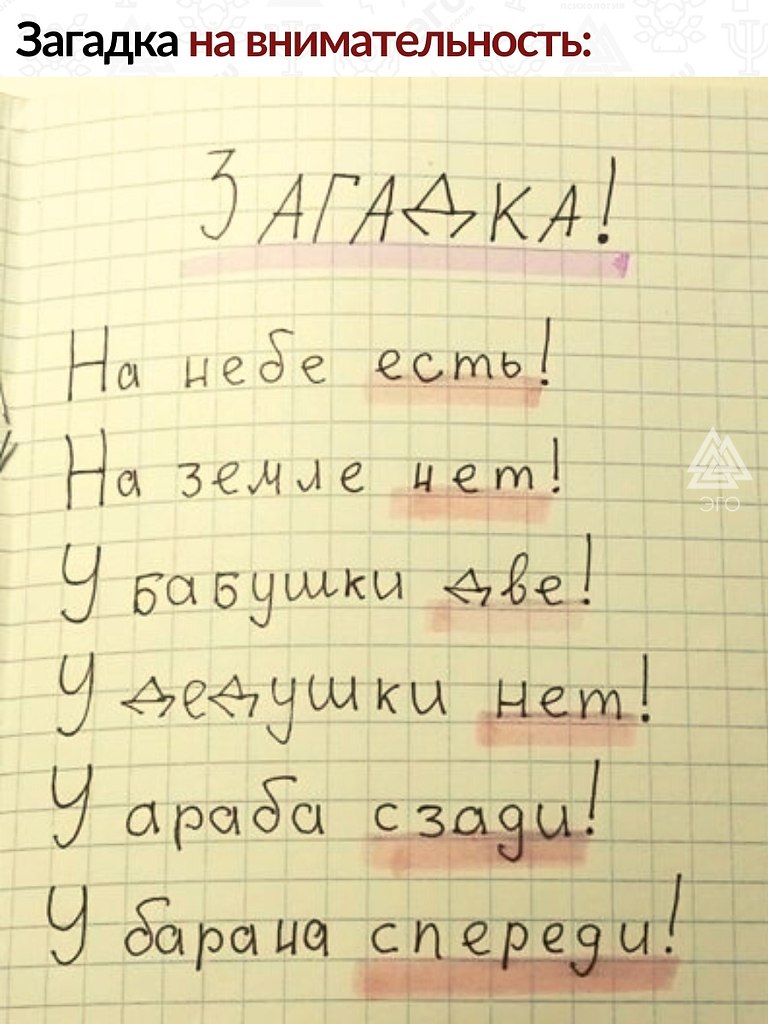 Загадка на внимательность:
ЗАГАДКА!
На небе есть!
На земле нет!
У бабушки две!
У дедушки нет!
У араба сзади!
У барана спереди!
ЭГО